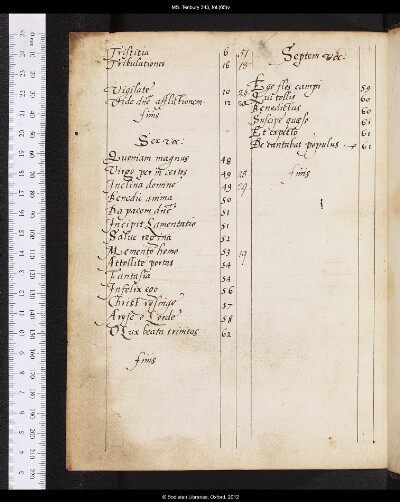 MS. Tenbury 343, fol. 65v
Tristitia 6 51
Tribulationes 16 18
Vigilate 10
Vide dñe afflictionem 12
finis
Sex voc:
Quoniam magnus 48
Virgo per 49 28
Inclina domine 49 29
Benedic anima 50
Da pacem dñe 51
Incipit Lamentatio 51
Salue regina 52
Memento homo 53 19
Attollite portas 54
Fantasia 54
Infelix ego 56
Christ rysinge 57
Aryse o Lorde 58
O Lux beata trinitas 62
finis
Septem voc:
Ego flos campi 59
Qui tollis 60
Benedictus 60
Suscipe quæso 61
Et expecto 61
Decantabat populus 61
finis
© Bodleian Libraries, Oxford, 2012